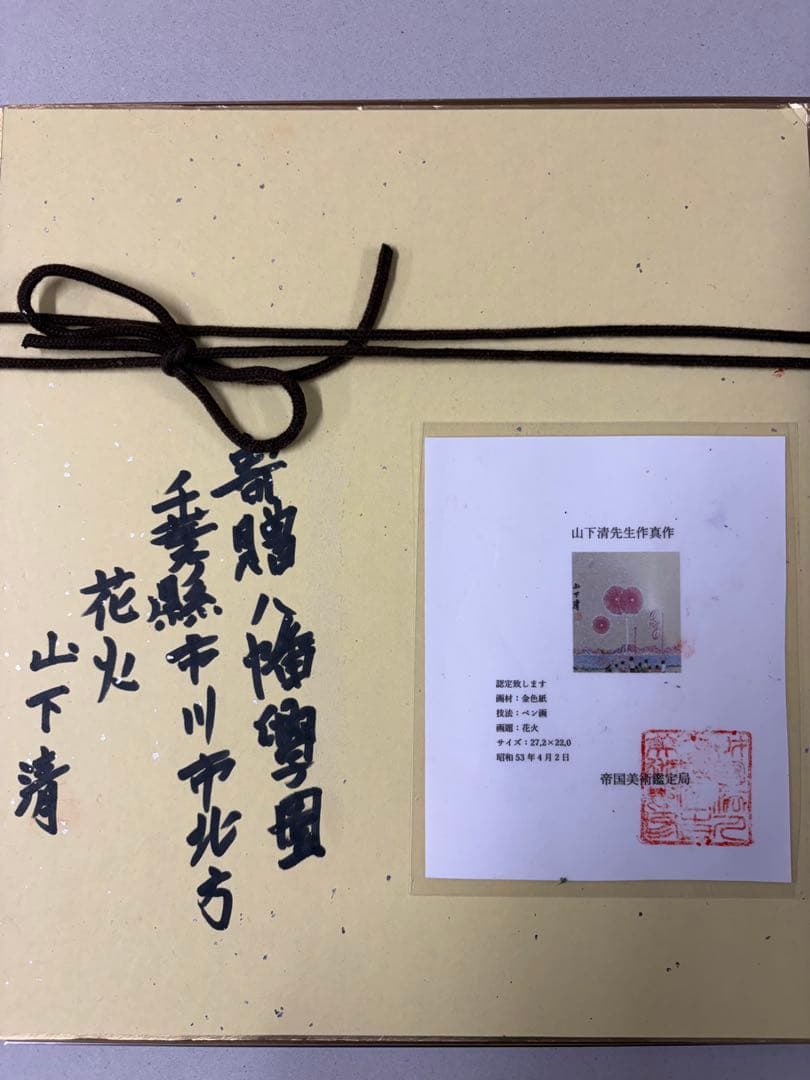 寄贈 八幡學園
千葉縣市川市北方
花火
山下清
山下清先生作真作
山下清
認定致します
画材：金色紙
技法：ペン画
画題：花火
サイズ：27,2×22,0
昭和 53 年 4 月 2 日
帝国美術鑑定局